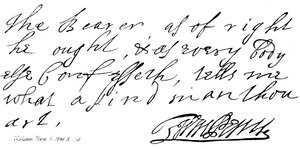 the Bearer as of right
he ought, & as every body
else Confesseth, tells me
what a kind man thou
art,